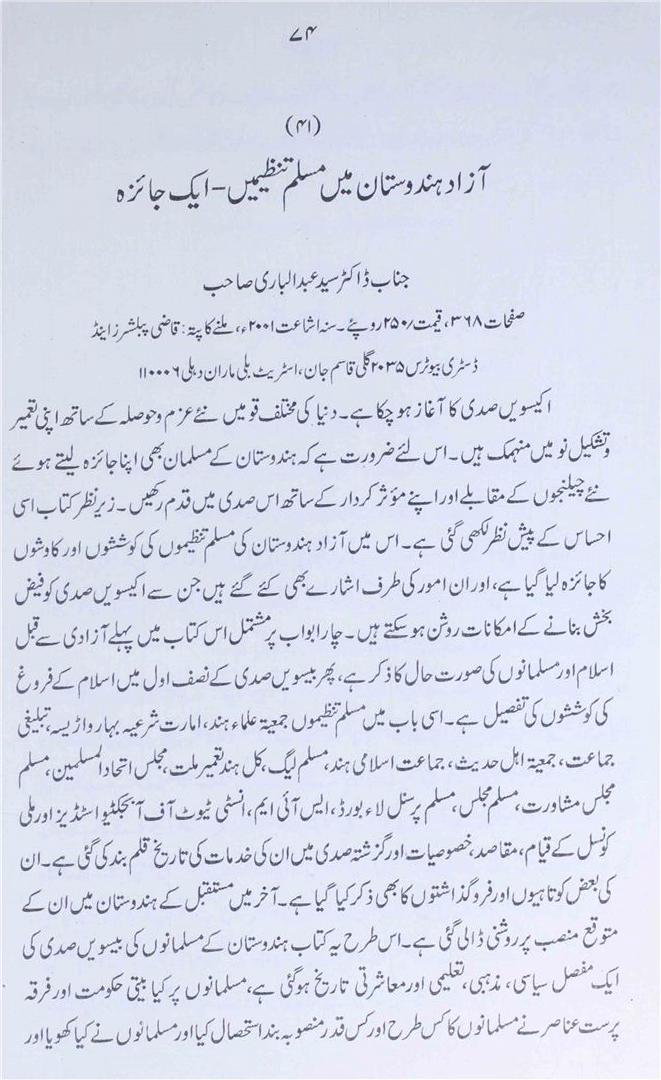 ۷۴
(۴۱)
آزاد ہندوستان میں مسلم تنظیمیں - ایک جائزہ
جناب ڈاکٹر سید عبدالباری صاحب
صفحات ۳۶۸، قیمت/۲۵۰ روپئے۔ سنہ اشاعت ۲۰۰۱ء، ملنے کا پتہ: قاضی پبلشرز اینڈ
ڈسٹری بیوٹرس ۲۰۳۵ گلی قاسم جان، اسٹریٹ بلی ماران دہلی ۱۱۰۰۰۶
اکیسویں صدی کا آغاز ہو چکا ہے۔ دنیا کی مختلف قومیں نئے عزم و حوصلہ کے ساتھ اپنی تعمیر
و تشکیل نو میں منہمک ہیں۔ اس لئے ضرورت ہے کہ ہندوستان کے مسلمان بھی اپنا جائزہ لیتے ہوئے
نئے چیلنجوں کے مقابلے اور اپنے مؤثر کردار کے ساتھ اس صدی میں قدم رکھیں۔ زیر نظر کتاب اسی
احساس کے پیش نظر لکھی گئی ہے۔ اس میں آزاد ہندوستان کی مسلم تنظیموں کی کوششوں اور کاوشوں
کا جائزہ لیا گیا ہے، اور ان امور کی طرف اشارے بھی کئے گئے ہیں جن سے اکیسویں صدی کو فیض
بخش بنانے کے امکانات روشن ہو سکتے ہیں۔ چار ابواب پر مشتمل اس کتاب میں پہلے آزادی سے قبل
اسلام اور مسلمانوں کی صورت حال کا ذکر ہے، پھر بیسویں صدی کے نصف اول میں اسلام کے فروغ
کی کوششوں کی تفصیل ہے۔ اسی باب میں مسلم تنظیموں جمعیۃ علماء ہند، امارت شرعیہ بہار واڑیسہ، تبلیغی
جماعت، جمعیۃ اہل حدیث، جماعت اسلامی ہند، مسلم لیگ، کل ہند تعمیر ملت، مجلس اتحاد المسلمین، مسلم
مجلس مشاورت، مسلم مجلس، مسلم پرسنل لاء بورڈ، ایس آئی ایم، انسٹی ٹیوٹ آف آبجکٹیو اسٹڈیز اور ملی
کونسل کے قیام، مقاصد، خصوصیات اور گزشتہ صدی میں ان کی خدمات کی تاریخ قلم بند کی گئی ہے۔ ان
کی بعض کوتاہیوں اور فروگذاشتوں کا بھی ذکر کیا گیا ہے۔ آخر میں مستقبل کے ہندوستان میں ان کے
متوقع منصب پر روشنی ڈالی گئی ہے۔ اس طرح یہ کتاب ہندوستان کے مسلمانوں کی بیسویں صدی کی
ایک مفصل سیاسی، مذہبی، تعلیمی اور معاشرتی تاریخ ہو گئی ہے، مسلمانوں پر کیا بیتی حکومت اور فرقہ
پرست عناصر نے مسلمانوں کا کس طرح اور کس قدر منصوبہ بند استحصال کیا اور مسلمانوں نے کیا کھویا اور